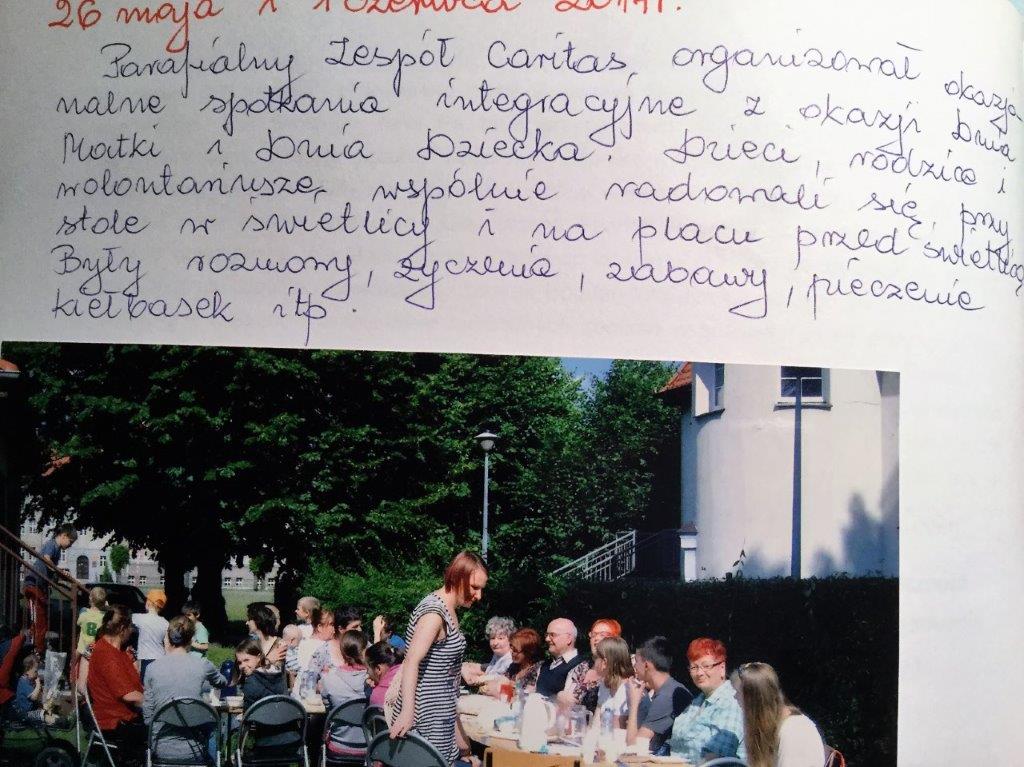 26 maja i 1 czerwca 2017r.
Parafialny Zespół Caritas organizował okazjo
nalne spotkania integracyjne z okazji Dnia
Matki i Dnia Dziecka. Dzieci, rodzice i
wolontariusze, wspólnie radowali się, przy
stole w świetlicy i na placu przed świetlicą
Były rozmowy, życzenia, zabawy, pieczenie
kiełbasek itp.